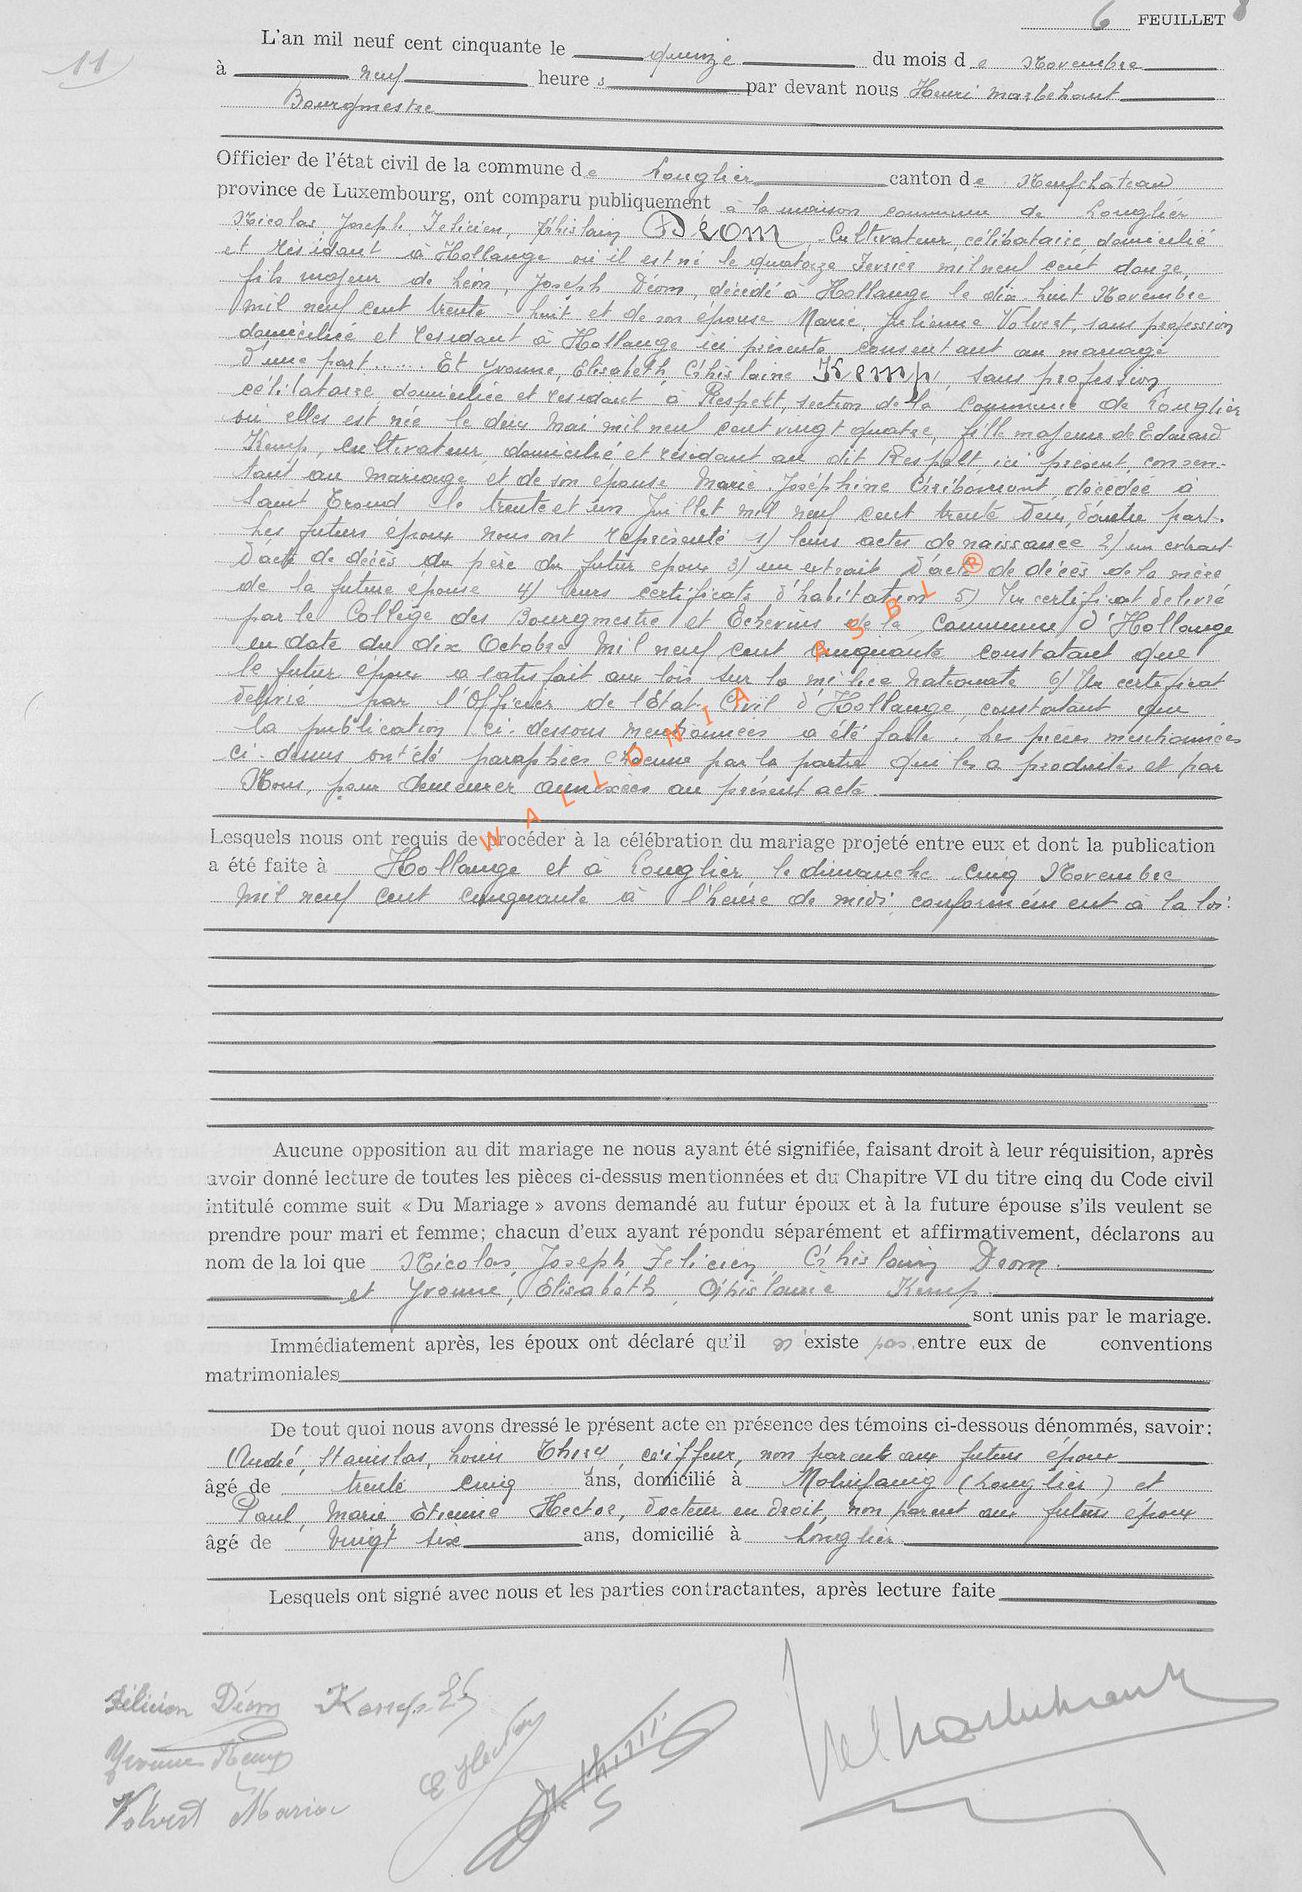 6 FEUILLET 8
11
L'an mil neuf cent cinquante le quinze du mois de Novembre
à neuf heures par devant nous Henri Marbehant
Bourgmestre
Officier de l'état civil de la commune de Longlier canton de Neufchâteau
province de Luxembourg, ont comparu publiquement à la maison commune de Longlier
Nicolas, Joseph, Felicien, Ghislain Déom, Cultivateur, célibataire domicilié
et résidant à Hollange où il est né le quatorze Fevrier mil neuf cent douze,
fils majeur de Léon, Joseph Déom, décédé à Hollange le dix huit Novembre
mil neuf cent trente huit et de son épouse Marie, Julienne Volvert, sans profession
domiciliée et résidant à Hollange ici présente, consentant au mariage
d'une part...... Et Yvonne, Elisabeth, Ghislaine Kemp, sans profession,
célibataire, domiciliée et résidant à Respelt, section de la Commune de Longlier
où elles est née le deux Mai mil neuf cent vingt quatre, fille majeure de Edouard
Kemp, cultivateur, domicilié et résidant au dit Respelt, ici présent, consen-
tant au mariage et de son épouse Marie, Joséphine Gribomont, décédée à
Saint Trond le trente et un Juillet mil neuf cent trente deux, d'autre part.
Les futurs époux nous ont représenté 1) leurs actes de naissance 2) un extrait
d'acte de décès du père du futur époux 3) un extrait d'acte de décès de la mère
de la future epouse 4) leurs certificats d'habitation 5) Un certificat delivré
par le Collège des Bourgmestre et Echevins de la Commune d'Hollange
en date du dix Octobre Mil neuf cent cinquante constatant que
le futur époux a satisfait aux lois sur la milice nationale 6) Un certificat
delivré par l'Officier de l'Etat-Civil d'Hollange, constatant que
la publication ci-dessous mentionnées a été faite. Les pièces mentionnées
ci-dessus ont été paraphées chacune par la partie qui les a produites et par
Nous, pour demeurer annexées au présent acte.
WALLONIA ASBL ®
Lesquels nous ont requis de procéder à la célébration du mariage projeté entre eux et dont la publication
a été faite à Hollange et à Longlier le dimanche cinq Novembre
Mil neuf cent cinquante à l'heure de midi conformément à la loi.
Aucune opposition au dit mariage ne nous ayant été signifiée, faisant droit à leur réquisition, après
avoir donné lecture de toutes les pièces ci-dessus mentionnées et du Chapitre VI du titre cinq du Code civil
intitulé comme suit « Du Mariage » avons demandé au futur époux et à la future épouse s'ils veulent se
prendre pour mari et femme; chacun d'eux ayant répondu séparément et affirmativement, déclarons au
nom de la loi que Nicolas, Joseph, Felicien, Ghislain Deom.
et Yvonne, Elisabéth, Ghislaine Kemp.
sont unis par le mariage.
Immédiatement après, les époux ont déclaré qu'il n'existe pas entre eux de conventions
matrimoniales
De tout quoi nous avons dressé le présent acte en présence des témoins ci-dessous dénommés, savoir:
André, Stanislas, Louis Thiry, coiffeur, non parent aux futurs époux
âgé de trente cinq ans, domicilié à Molinfaing (Longlier) et
Paul, Marie, Etienne Hector, docteur en droit, non parent aux futurs époux
âgé de vingt six ans, domicilié à Longlier
Lesquels ont signé avec nous et les parties contractantes, après lecture faite
Félicien Déom Kemp Ed
Yvonne Kemp
Volvert Maria